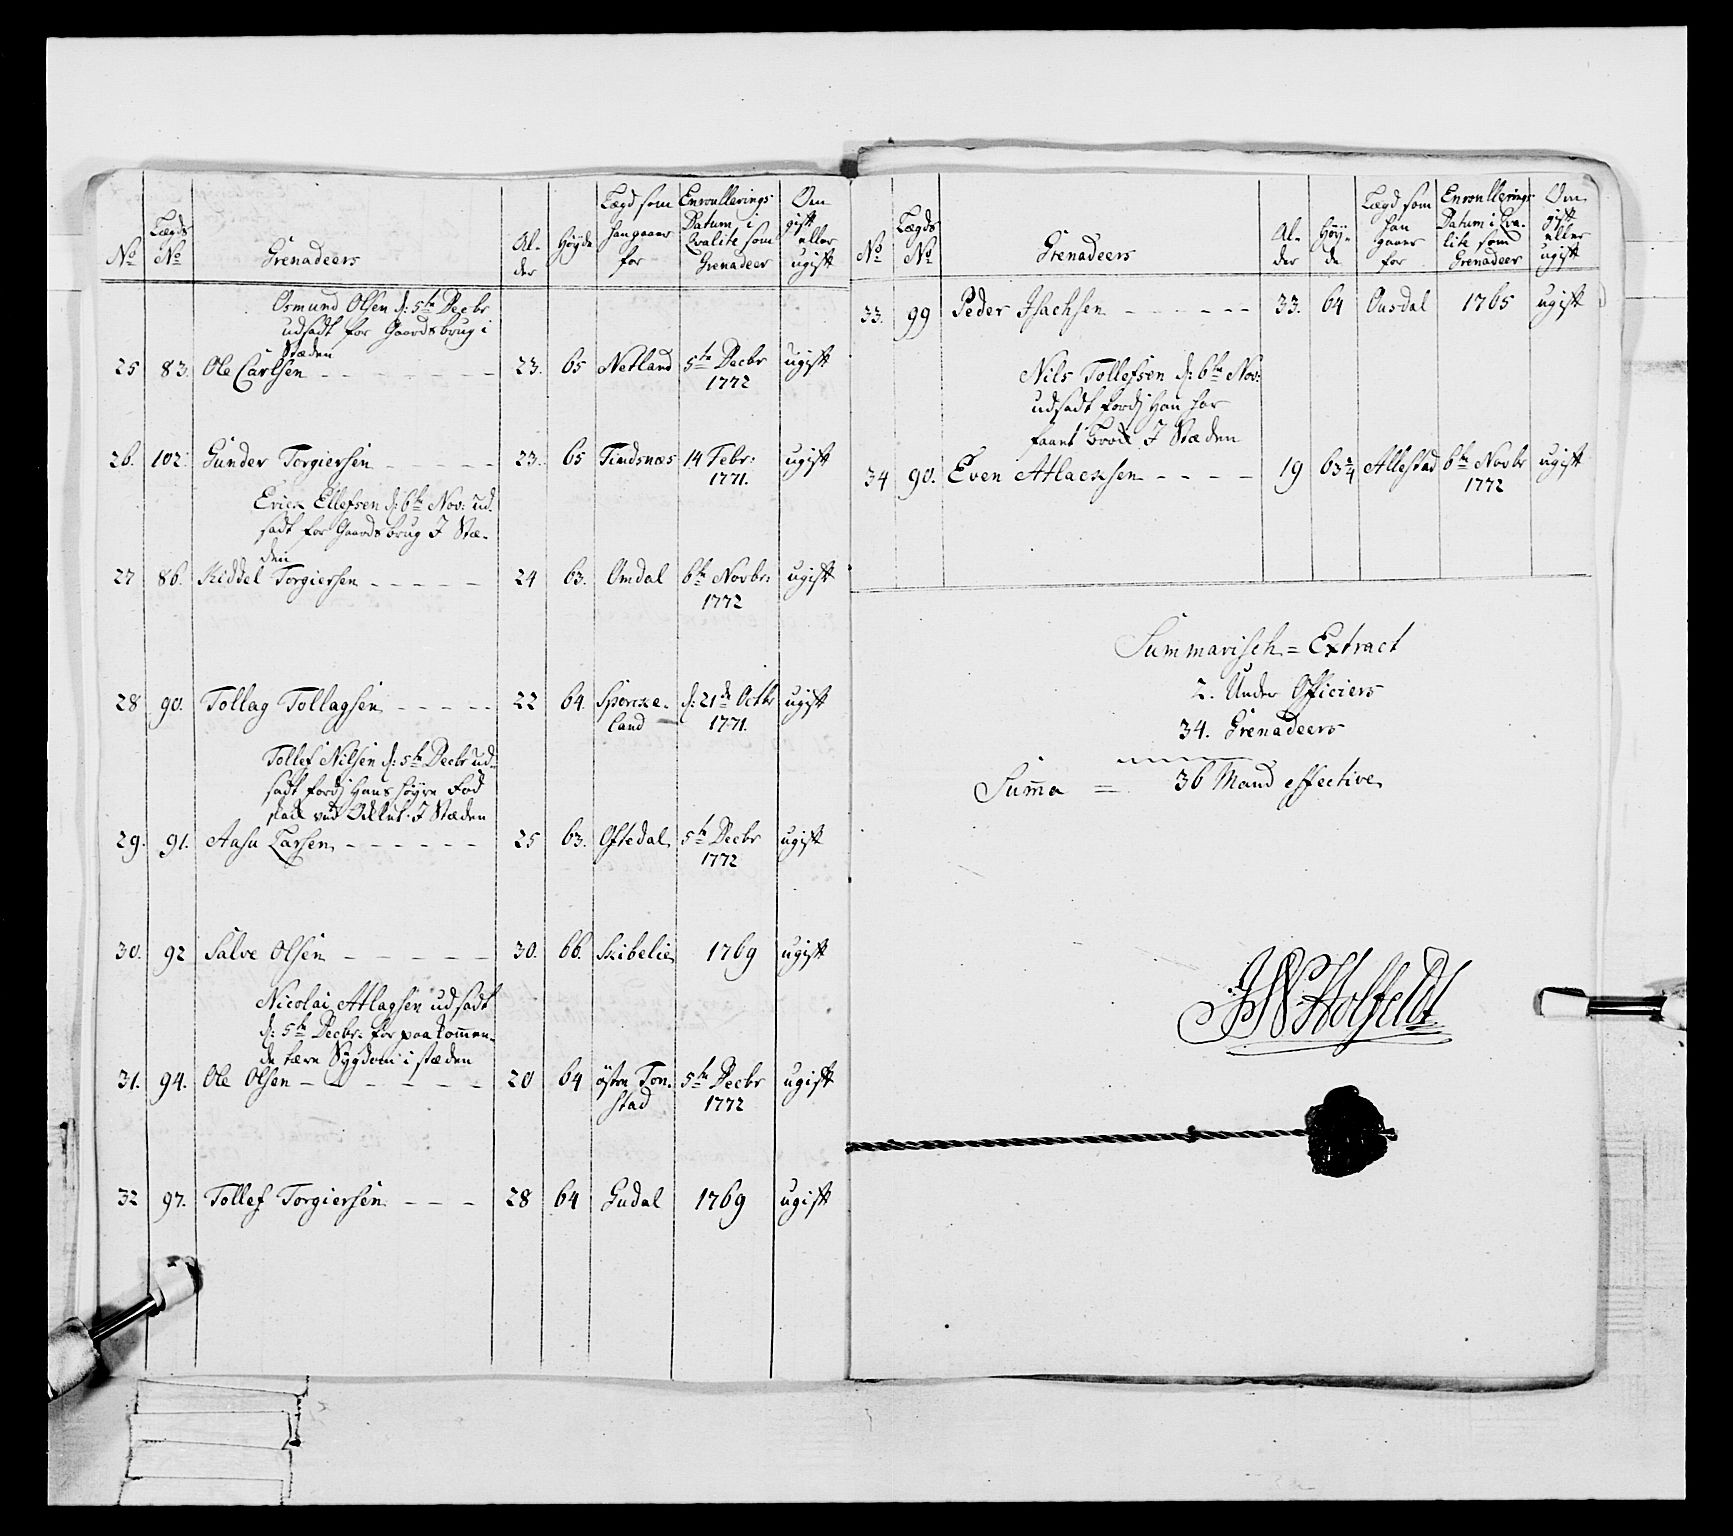 No | Lægds No | Grenadeers | Al-der | Høyde | Lægd som han gaaer for | Enroullerings Datum i Qvalite som Grenadeer | Om gift eller ugift
Osmund Olsen d: 5te Decbr
udsadt for Gaardsbrug i
Stæden
25 83. Ole Carlsen - - - - 23. 65 Netland 5te Decbr 1772 ugift
26. 102. Gunder Torgiersen - - - - 23. 65 Tindsnæs 14 Febr: 1771. ugift
Erick Ellefsen d: 6te Nov: ud
sadt for Gaardsbrug I Stæ-
den
27 86. Kiddel Torgiersen - - - - 24 63. Omdal 6te Novbr: 1772 ugift
28 90. Tollag Tollagsen - - - - 22 64. Sporcke-land d: 21de Octbr 1771. ugift
Tollef Nilsen d: 5te Decbr ud-
sadt fordj Hans høyre Fod
I Stæden
29. 91. Aasu Larsen - - - - 25 63. Oftedal 5te Decbr 1772 ugift
30. 92 Salve Olsen - - - - 30. 66. Skibelie 1769 ugift
Nicolai Atlagsen udsadt
d: 5te Decbr: for paakommen-
de Sygdom i stæden
31. 94. Ole Olsen - - - - 20 64 østre Ton-stad 5te Decbr 1772 ugift
32 97. Tollef Torgiersen - - - 28 64 Gudal 1769 ugift
No | Lægds No | Grenadeers | Al-der | Høy-de | Lægd som han gaaer for | Enroullerings Datum i Qva-lite som Grenadeer | Om gift eller ugift
33. 99 Peder Isachsen - - - - 33. 64 Ousdal 1765 ugift
Nils Tollefsen d: 6te Nov:
udsadt fordj Han har
faaet I Stæden
34 90. Even Atlacksen - - - - 19 63 3/4 Allestad 6te Novbr 1772 ugift
Summarisch = Extract
2. Under Officiers
34. Grenadeers
Summa = 36 Mand effective